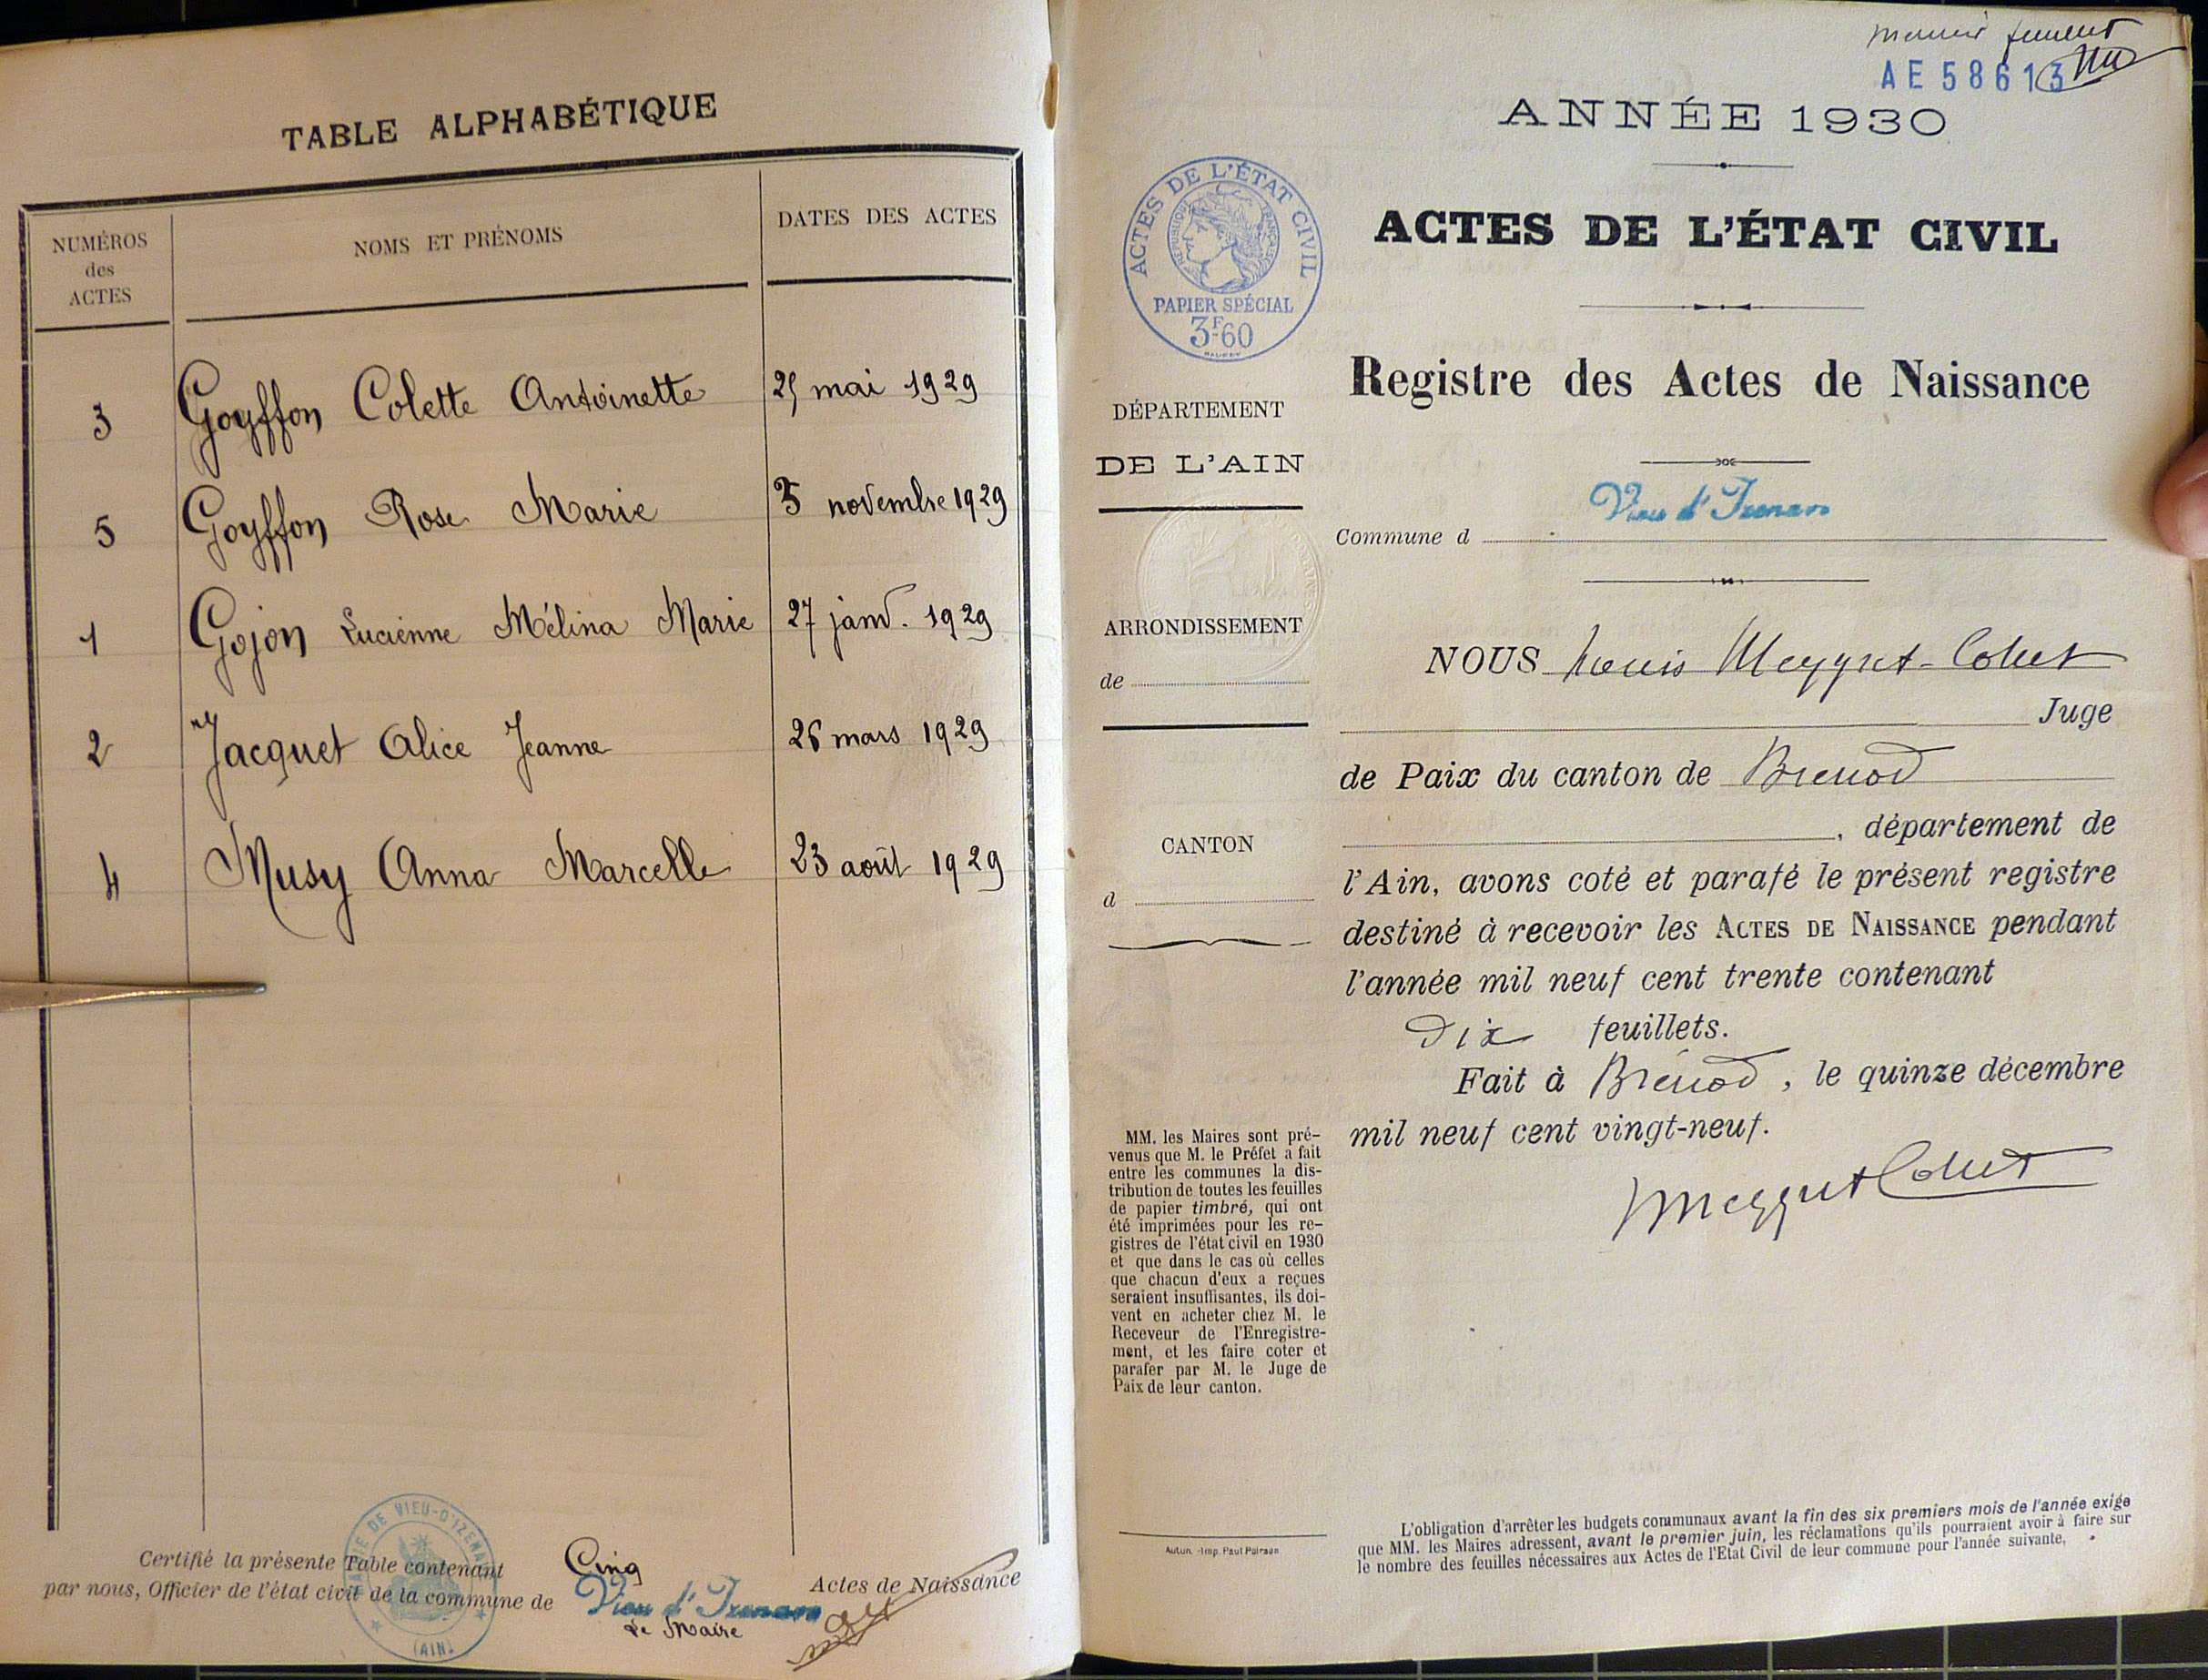 TABLE ALPHABÉTIQUE
NUMÉROS
des
ACTES
NOMS ET PRÉNOMS
DATES DES ACTES
3 Goyffon Colette Antoinette 25 mai 1929
5 Goyffon Rose Marie 3 novembre 1929
1 Gojon Lucienne Mélina Marie 27 janv. 1929
2 Jacquet Alice Jeanne 26 mars 1929
4 Musy Anna Marcelle 23 août 1929
Certifié la présente Table contenant Cinq Actes de Naissance
par nous, Officier de l'état civil de la commune de Vieu d'Izenave
Le Maire
MAIRIE DE VIEU-D'IZENAVE
(AIN)
AE 58613
ANNÉE 1930
ACTES DE L'ÉTAT CIVIL
RÉPUBLIQUE FRANÇAISE
PAPIER SPÉCIAL
3F60
ACTES DE L'ÉTAT CIVIL
Registre des Actes de Naissance
DÉPARTEMENT
DE L'AIN
Vieu d'Izenave
Commune d
ARRONDISSEMENT
de
CANTON
d
NOUS Louis Meygret-Collet
Juge
de Paix du canton de Brenod
, département de
l'Ain, avons coté et parafé le présent registre
destiné à recevoir les ACTES DE NAISSANCE pendant
l'année mil neuf cent trente contenant
Dix feuillets.
Fait à Brénod, le quinze décembre
mil neuf cent vingt-neuf.
Meygret Collet
MM. les Maires sont pré-
venus que M. le Préfet a fait
entre les communes la dis-
tribution de toutes les feuilles
de papier timbré, qui ont
été imprimées pour les re-
gistres de l'état civil en 1930
et que dans le cas où celles
que chacun d'eux a reçues
seraient insuffisantes, ils doi-
vent en acheter chez M. le
Receveur de l'Enregistre-
ment, et les faire coter et
parafer par M. le Juge de
Paix de leur canton.
Autun. - Imp. Paul Poirson
L'obligation d'arrêter les budgets communaux avant la fin des six premiers mois de l'année exige
que MM. les Maires adressent, avant le premier juin, les réclamations qu'ils pourraient avoir à faire sur
le nombre des feuilles nécessaires aux Actes de l'Etat Civil de leur commune pour l'année suivante.